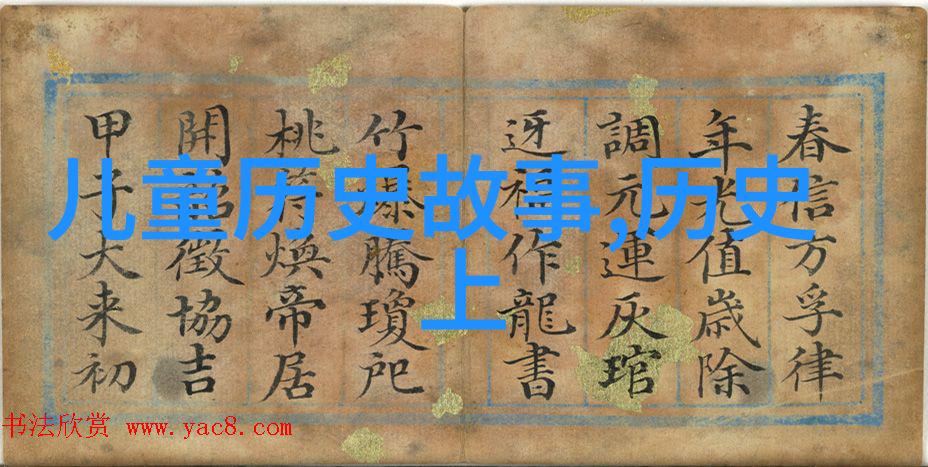 儿童历史故事,历史
上
春信方孚律
年光值歲除
調元運灰琯
迓福作龍書
竹爆騰瓊戺
桃符煥帝居
開徵協吉
甲子大来初
书法欣赏 www.yac8.com